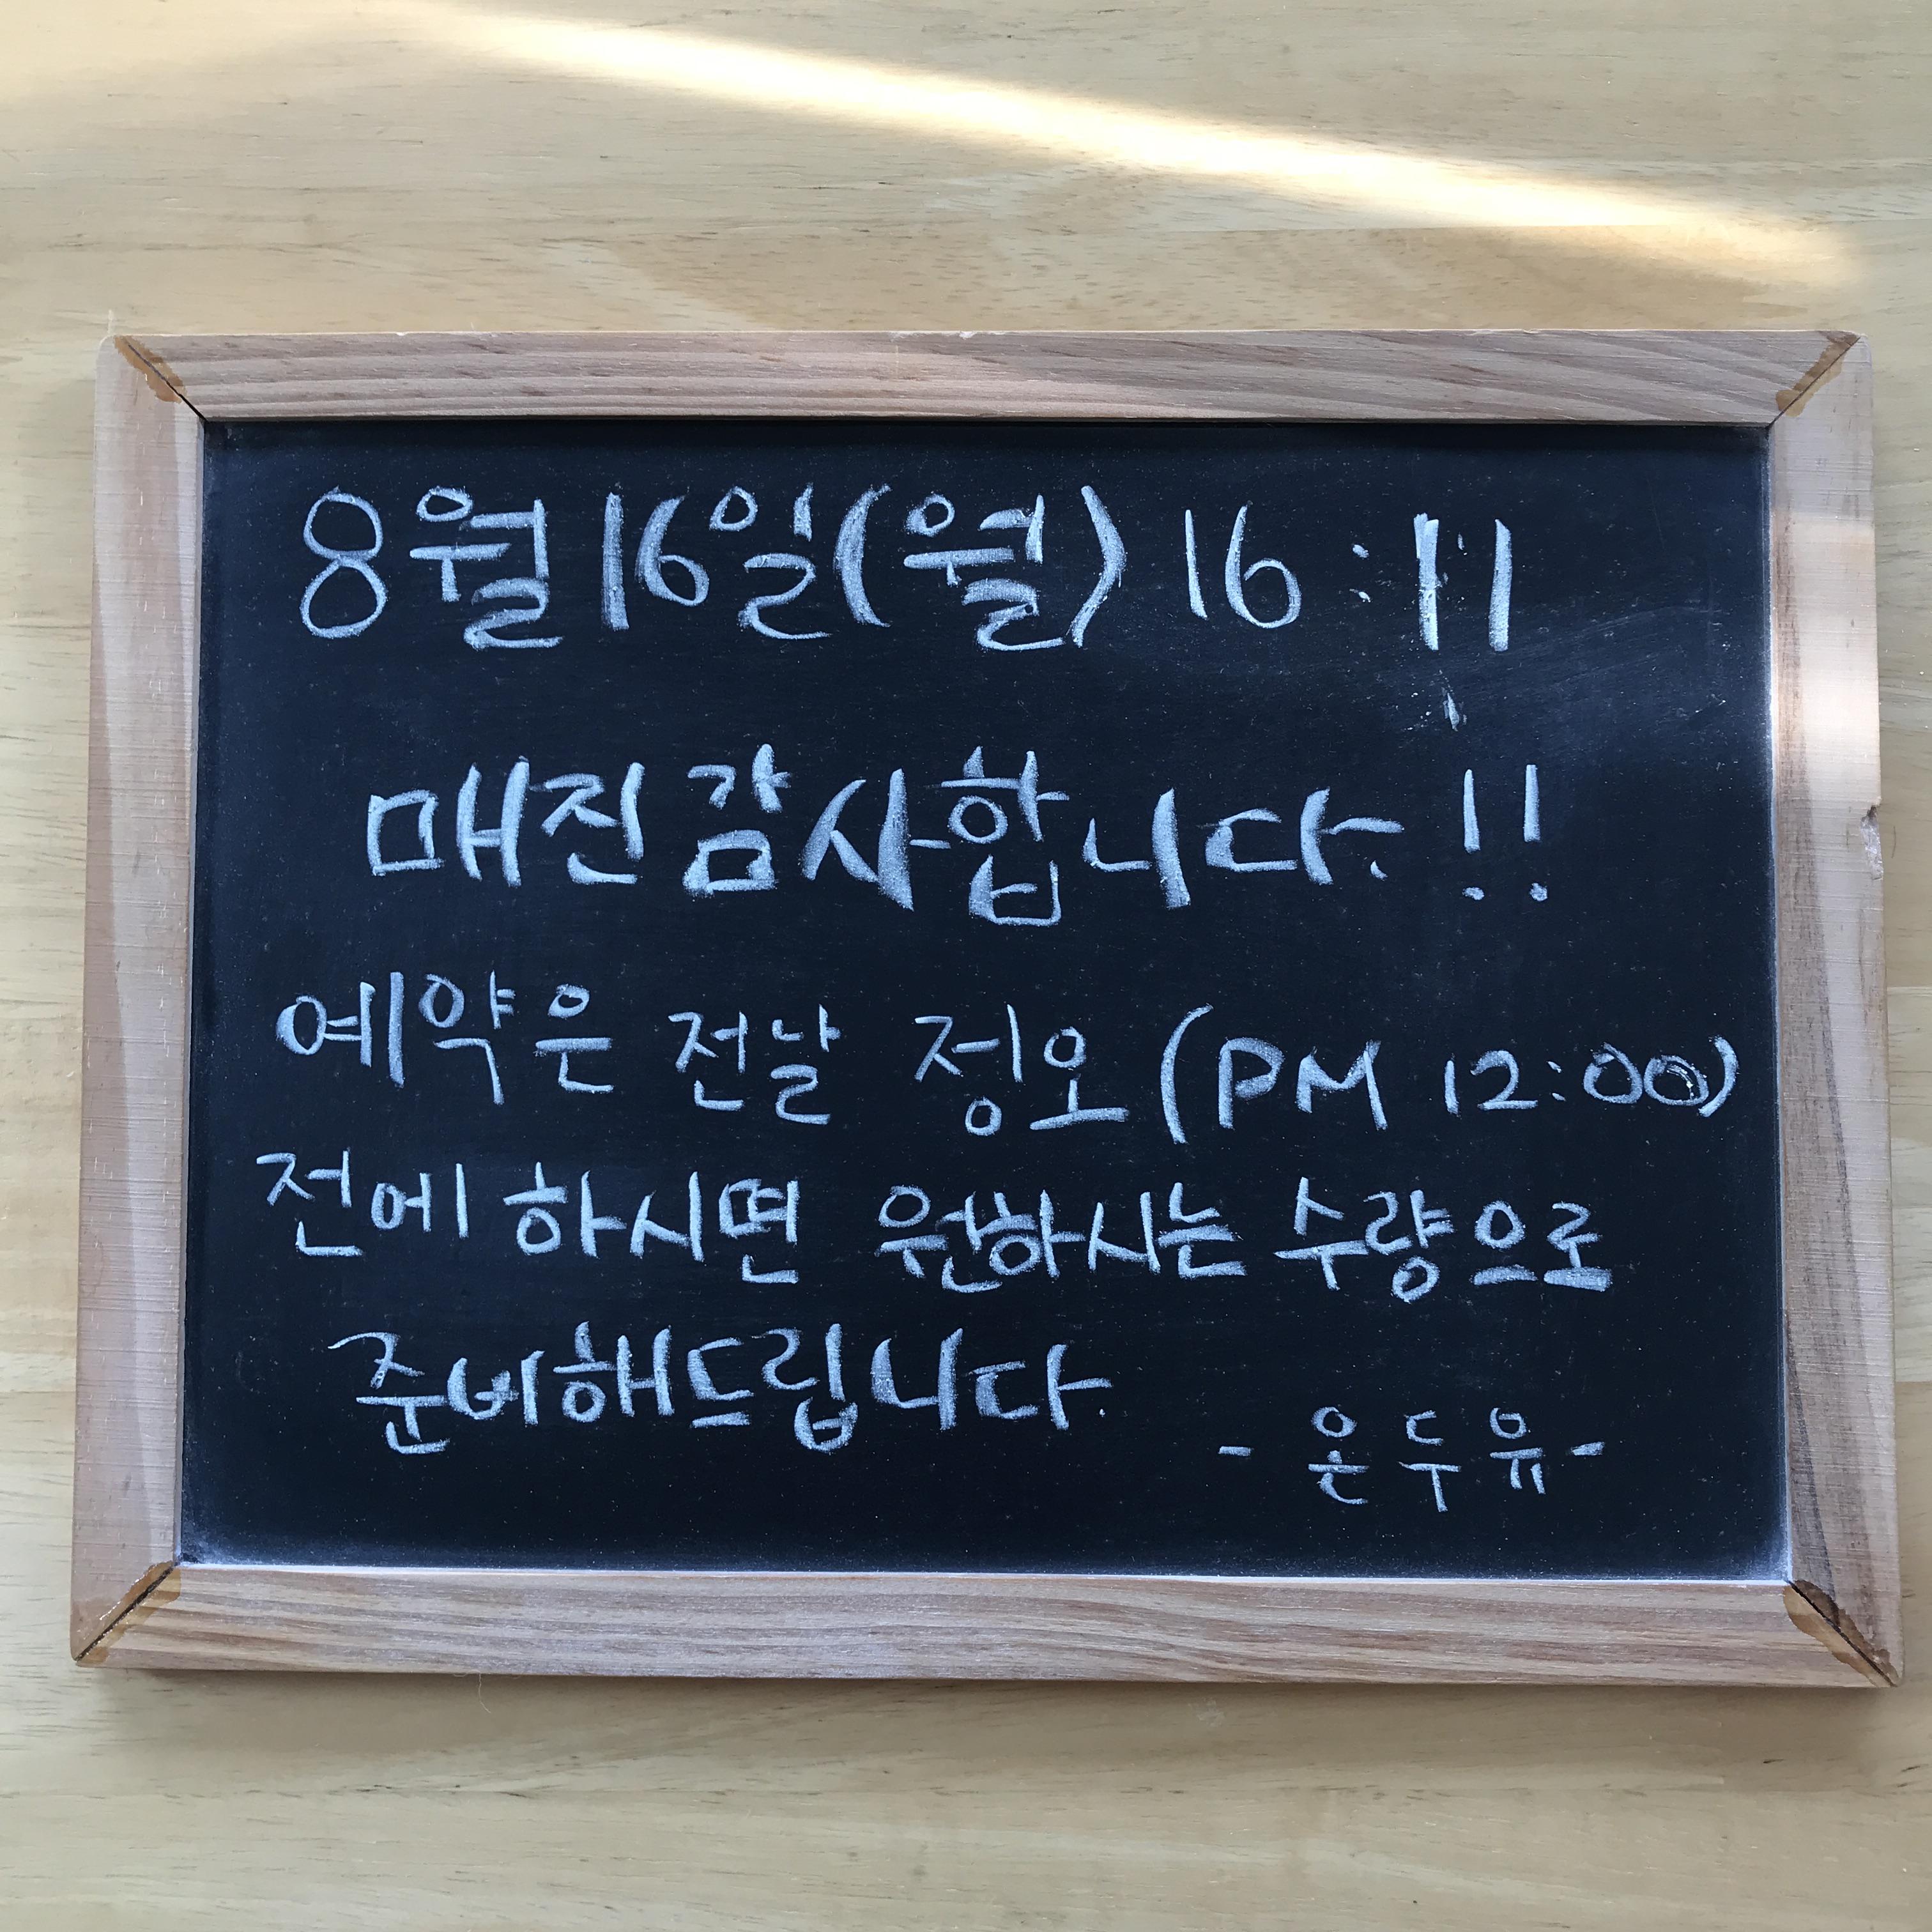 8월 16일(월) 16:11
매진 감사합니다.!!
예약은 전날 정오 (PM 12:00)
전에 하시면 원하시는 수량으로
준비해드립니다.
- 온두유 -